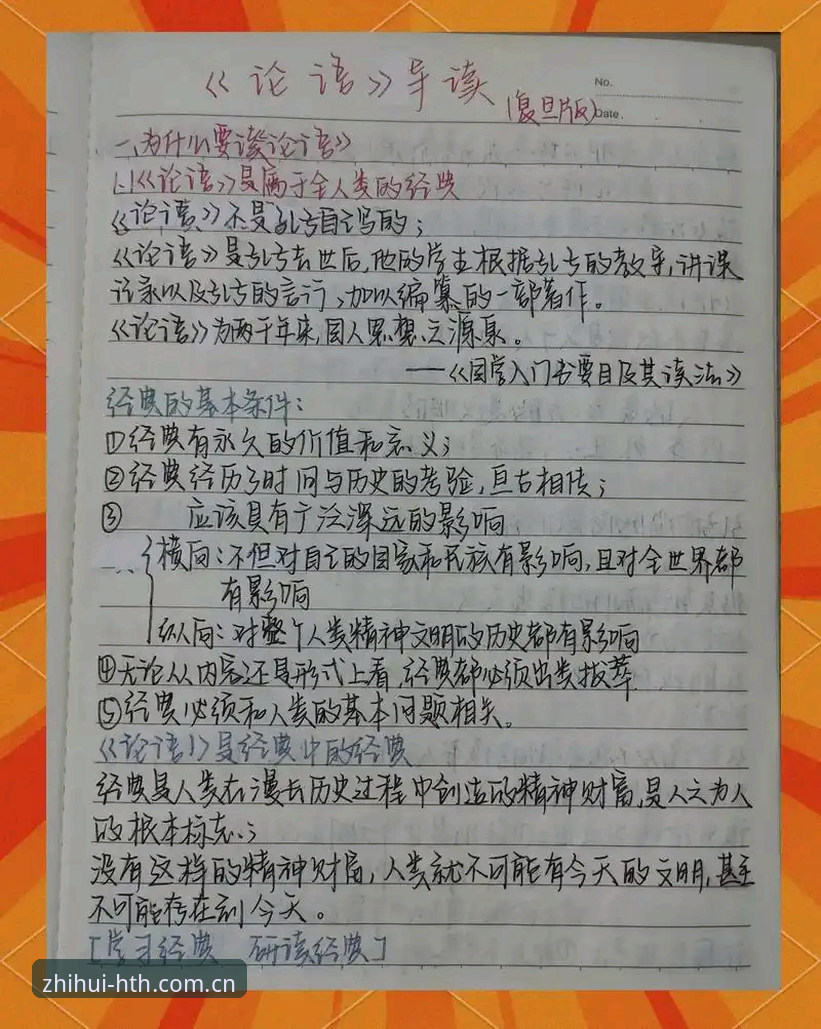 《论语》导读
No.
(复旦版)
Date.
一、为什么要读《论语》
1.1《论语》是属于全人类的经典
《论语》不是孔子自己写的；
《论语》是孔子去世后，他的学生根据孔子的教导，讲课
记录以及孔子的言行，加以编纂的一部著作。
《论语》为两千年来，国人思想之源泉。
——《国学入门书要目及其读法》
经典的基本条件：
①经典有永久的价值和意义；
②经典经历了时间与历史的考验，亘古相传；
③ 应该具有广泛深远的影响
横向：不但对自己的国家和民族有影响，且对全世界都
有影响
纵向：对整个人类精神文明的历史都有影响
④无论从内容还是形式上看，经典都必须出类拔萃.
⑤经典必须和人类的基本问题相关。
《论语》是经典中的经典
经典是人类在漫长历史过程中创造的精神财富，是人之为人
的根本标志；
没有这样的精神财富，人类就不可能有今天的文明，甚至
不可能存在到今天。
[学习经典 研读经典]
zhihui-hth.com.cn